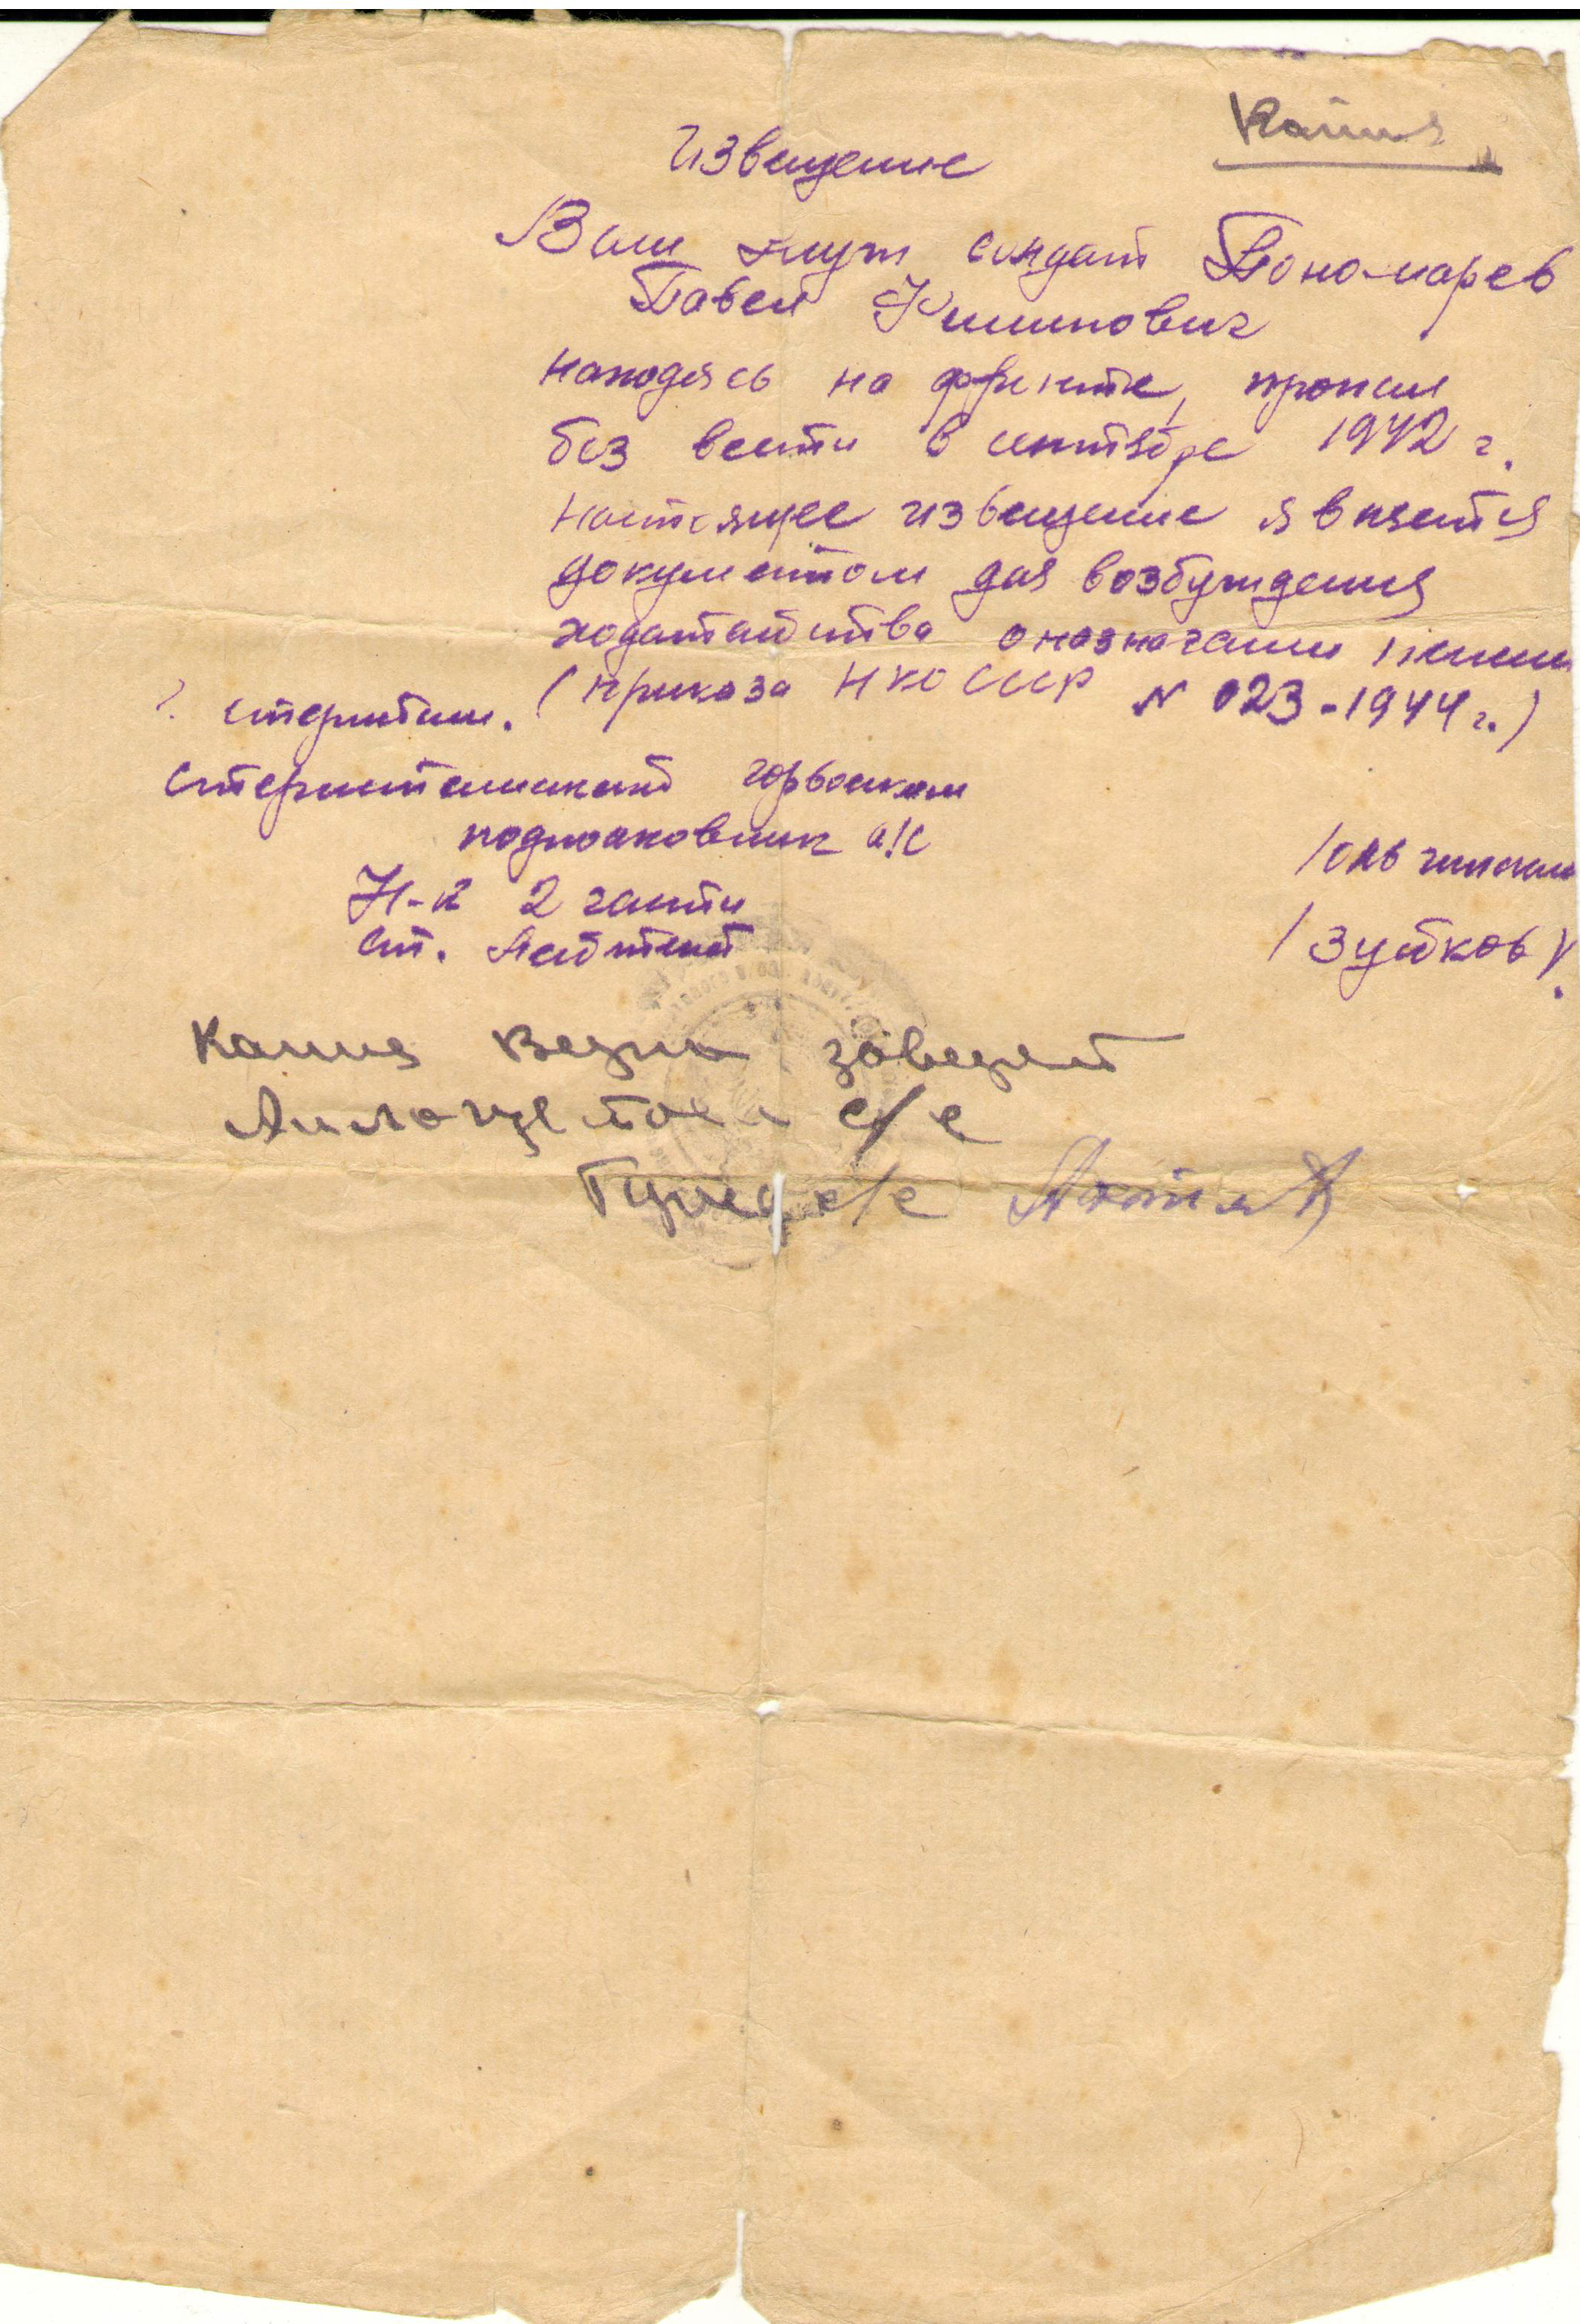 Копия
Извещение
Ваш муж солдат Пономарев
Павел
находясь на фронте, пропал
без вести в сентябре 1942 г.
Настоящее извещение является
документом для возбуждения
ходатайства о назначении пенсии
(приказа НКО СССР № 023-1944 г.)
г. стерлитам.
Стерлитамакский горвоенком
подполковник а/с
Н-к 2 части
ст. Лейтенант
/Зуйков/.
Копия верна
с/с
с/с